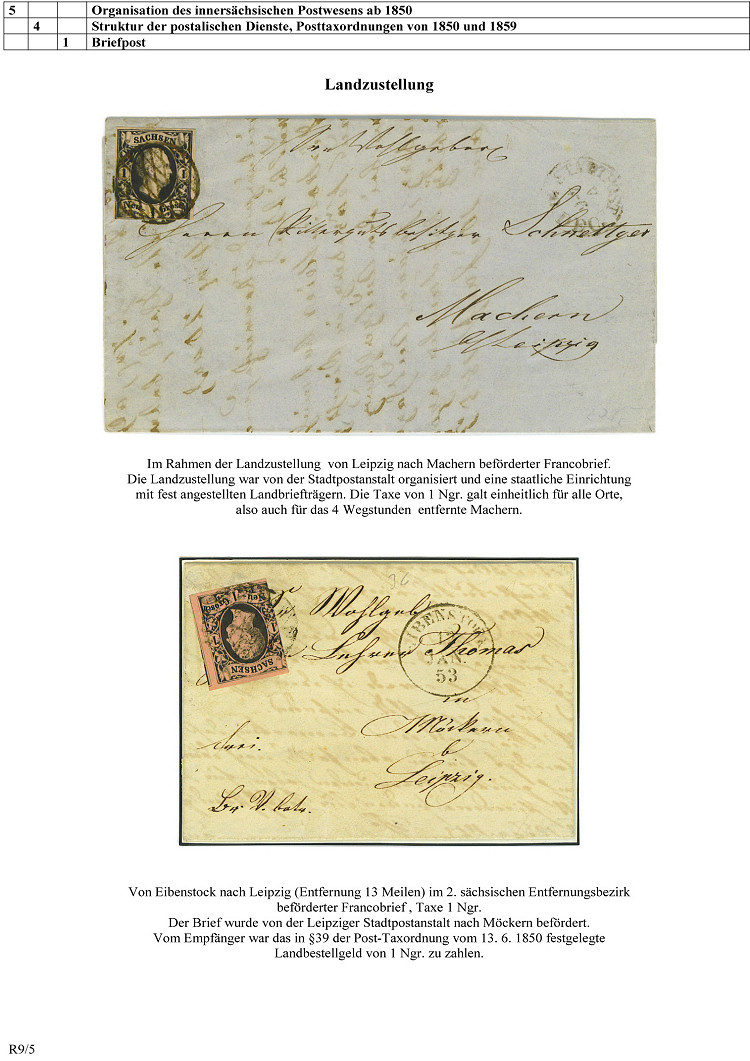 5 Organisation des innersächsischen Postwesens ab 1850
4 Struktur der postalischen Dienste, Posttaxordnungen von 1850 und 1859
1 Briefpost
Landzustellung
SACHSEN
1 1
Neu Grosch
Herrn Rittergutsbesitzer Schnettger
Machern
b/Leipzig
Im Rahmen der Landzustellung von Leipzig nach Machern beförderter Francobrief.
Die Landzustellung war von der Stadtpostanstalt organisiert und eine staatliche Einrichtung
mit fest angestellten Landbriefträgern. Die Taxe von 1 Ngr. galt einheitlich für alle Orte,
also auch für das 4 Wegstunden entfernte Machern.
SACHSEN
1 1
Neu Grosch
Wohlgeb
Lehrer Thomas
EIBENSTOCK
JAN.
53
in
Möckern
b
Leipzig.
frei.
Von Eibenstock nach Leipzig (Entfernung 13 Meilen) im 2. sächsischen Entfernungsbezirk
beförderter Francobrief , Taxe 1 Ngr.
Der Brief wurde von der Leipziger Stadtpostanstalt nach Möckern befördert.
Vom Empfänger war das in §39 der Post-Taxordnung vom 13. 6. 1850 festgelegte
Landbestellgeld von 1 Ngr. zu zahlen.
R9/5